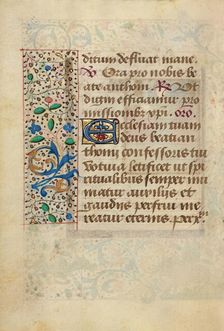 ditum defluat mane.
V Ora pro nobis be
ate anthoni. R Ut
digni efficiamur pro
missionibz xpi. oro.
Ecclesiam tuam
deus beati an
thonij confessoris tui
votiua letificet ut spi
ritualibus semper mu
niatur auxilijs et
gaudijs perfrui me
reatur eternis. per